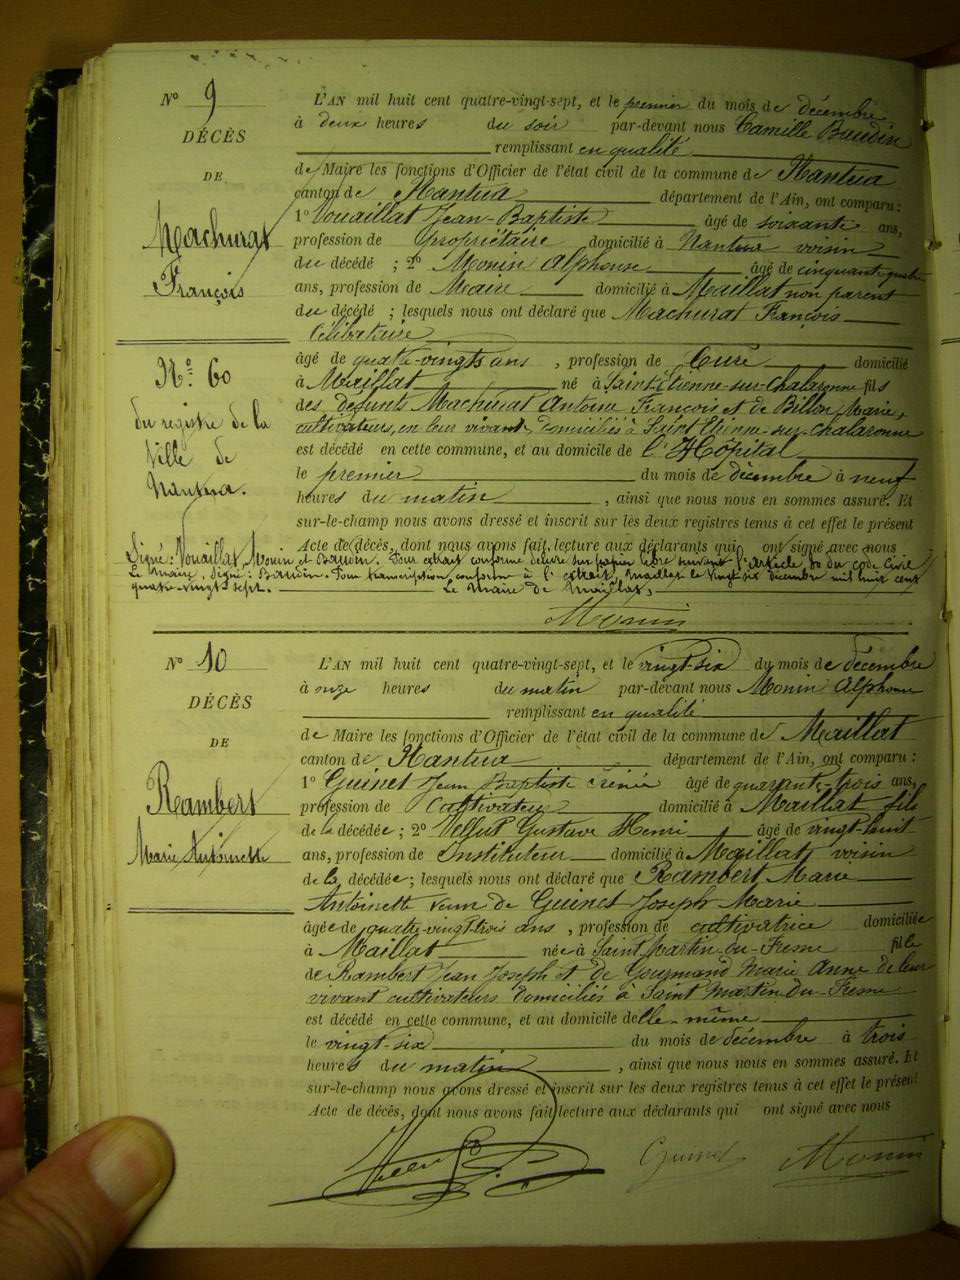 N° 9
DÉCÈS
DE
Machurat
François
N°: 60
du registre de la
Ville de
Nantua.
L'AN mil huit cent quatre-vingt-sept, et le premier du mois de décembre
à deux heures du soir par-devant nous Camille Baudin
remplissant en qualité
de Maire les fonctions d'Officier de l'état civil de la commune de Nantua
canton de Nantua département de l'Ain, ont comparu :
1° Vouaillat Jean-Baptiste âgé de soixante ans,
profession de propriétaire domicilié à Nantua voisin
du décédé ; 2° Monin Alphonse âgé de cinquante-quatre
ans, profession de Maire domicilié à Maillat non parent
du décédé ; lesquels nous ont déclaré que Machurat François
Célibataire
âgé de quatre-vingts ans , profession de Curé domicilié
à Maillat né à Saint-Etienne-sur-Chalaronne fils
des défunts Machurat Antoine François et de Billon Marie,
cultivateurs, en leur vivant domiciliés à Saint Etienne-sur-Chalaronne
est décédé en cette commune, et au domicile de l'Hôpital
le premier du mois de décembre à neuf
heures du matin , ainsi que nous nous en sommes assuré. Et
sur-le-champ nous avons dressé et inscrit sur les deux registres tenus à cet effet le présent
Acte de décès, dont nous avons fait lecture aux déclarants qui ont signé avec nous
Signé : Vouaillat, Monin et Baudin. Pour extrait conforme délivré sur papier libre suivant l'article 80 du Code Civil
Le Maire, Signé : Baudin. Pour transcription conforme à l'extrait, Maillat le vingt six décembre mil huit cent
quatre-vingt-sept. Le Maire de Maillat,
Monin
N° 10
DÉCÈS
DE
Rambert
Marie Antoinette
L'AN mil huit cent quatre-vingt-sept, et le vingt-six du mois de décembre
à onze heures du matin par-devant nous Monin Alphonse
remplissant en qualité
de Maire les fonctions d'Officier de l'état civil de la commune de Maillat
canton de Nantua département de l'Ain, ont comparu :
1° Guinet Jean Baptiste âgé de quarante-trois ans,
profession de Cultivateur domicilié à Maillat fils
de la décédée ; 2° Gustave Henri âgé de vingt-huit
ans, profession de Instituteur domicilié à Maillat voisin
de la décédée ; lesquels nous ont déclaré que Rambert Marie
Antoinette veuve de Guinet Joseph Marie
âgée de quatre-vingt-trois ans , profession de cultivatrice domiciliée
à Maillat née à Saint Martin-du-Fresne fille
de Rambert Jean Joseph et de Gourmand Marie Anne de leur
vivant cultivateurs domiciliés à Saint Martin-du-Fresne
est décédé en cette commune, et au domicile d'elle-même
le vingt-six du mois de décembre à trois
heures du matin , ainsi que nous nous en sommes assuré. Et
sur-le-champ nous avons dressé et inscrit sur les deux registres tenus à cet effet le présent
Acte de décès, dont nous avons fait lecture aux déclarants qui ont signé avec nous
Guinet Monin